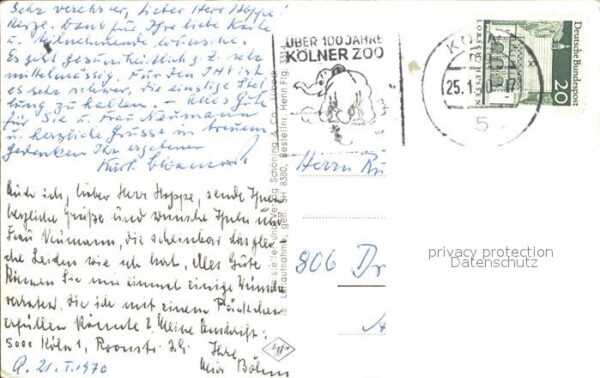 Sehr verehrter, lieber Herr Hoppe!
Herzl. Dank für Ihre liebe Karte
u. teilnehmende Wünsche.
Es geht gesundheitlich z. Z. sehr
mittelmässig. Für den
es sehr schwer, die einstige Stel-
lung zu halten. - Alles Gute
für Sie u. Frau Naumann
u. herzliche Grüsse in treuem
Gedenken Ihr ergebener
Kurt
Auch ich, lieber Herr Hoppe, sende Ihnen
herzliche Grüße und wünsche Ihnen und
Frau Neumann, die scheinbar das glei-
che Leiden wie ich hat, Alles Gute.
Können Sie mir einmal einige Wünsche
verraten, die ich mit einem Päckchen
erfüllen könnte? Meine Anschrift:
5000 Köln 1, Roonstr.
Ihre
Böhm
21.I.1970
ÜBER 100 JAHRE
KÖLNER ZOO
KÖLN
25.1
17
5
Deutsche Bundespost
LORSCH HESSEN
20
Verlag Schöning & Co., Lübeck
Luftaufnahme, gen. SH 8380, Bestellnr. Henn Flg.
Herrn
806 Dr
agfa
privacy protection
Datenschutz